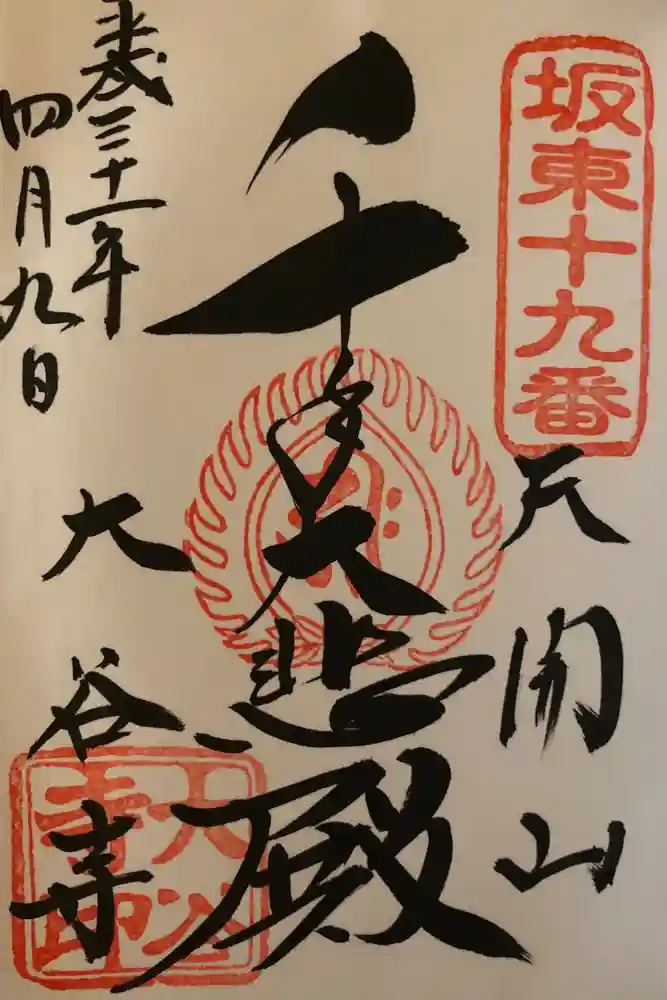 坂東十九番
天開山
千手大悲殿
大谷寺
平成三十一年
四月九日
大谷寺印